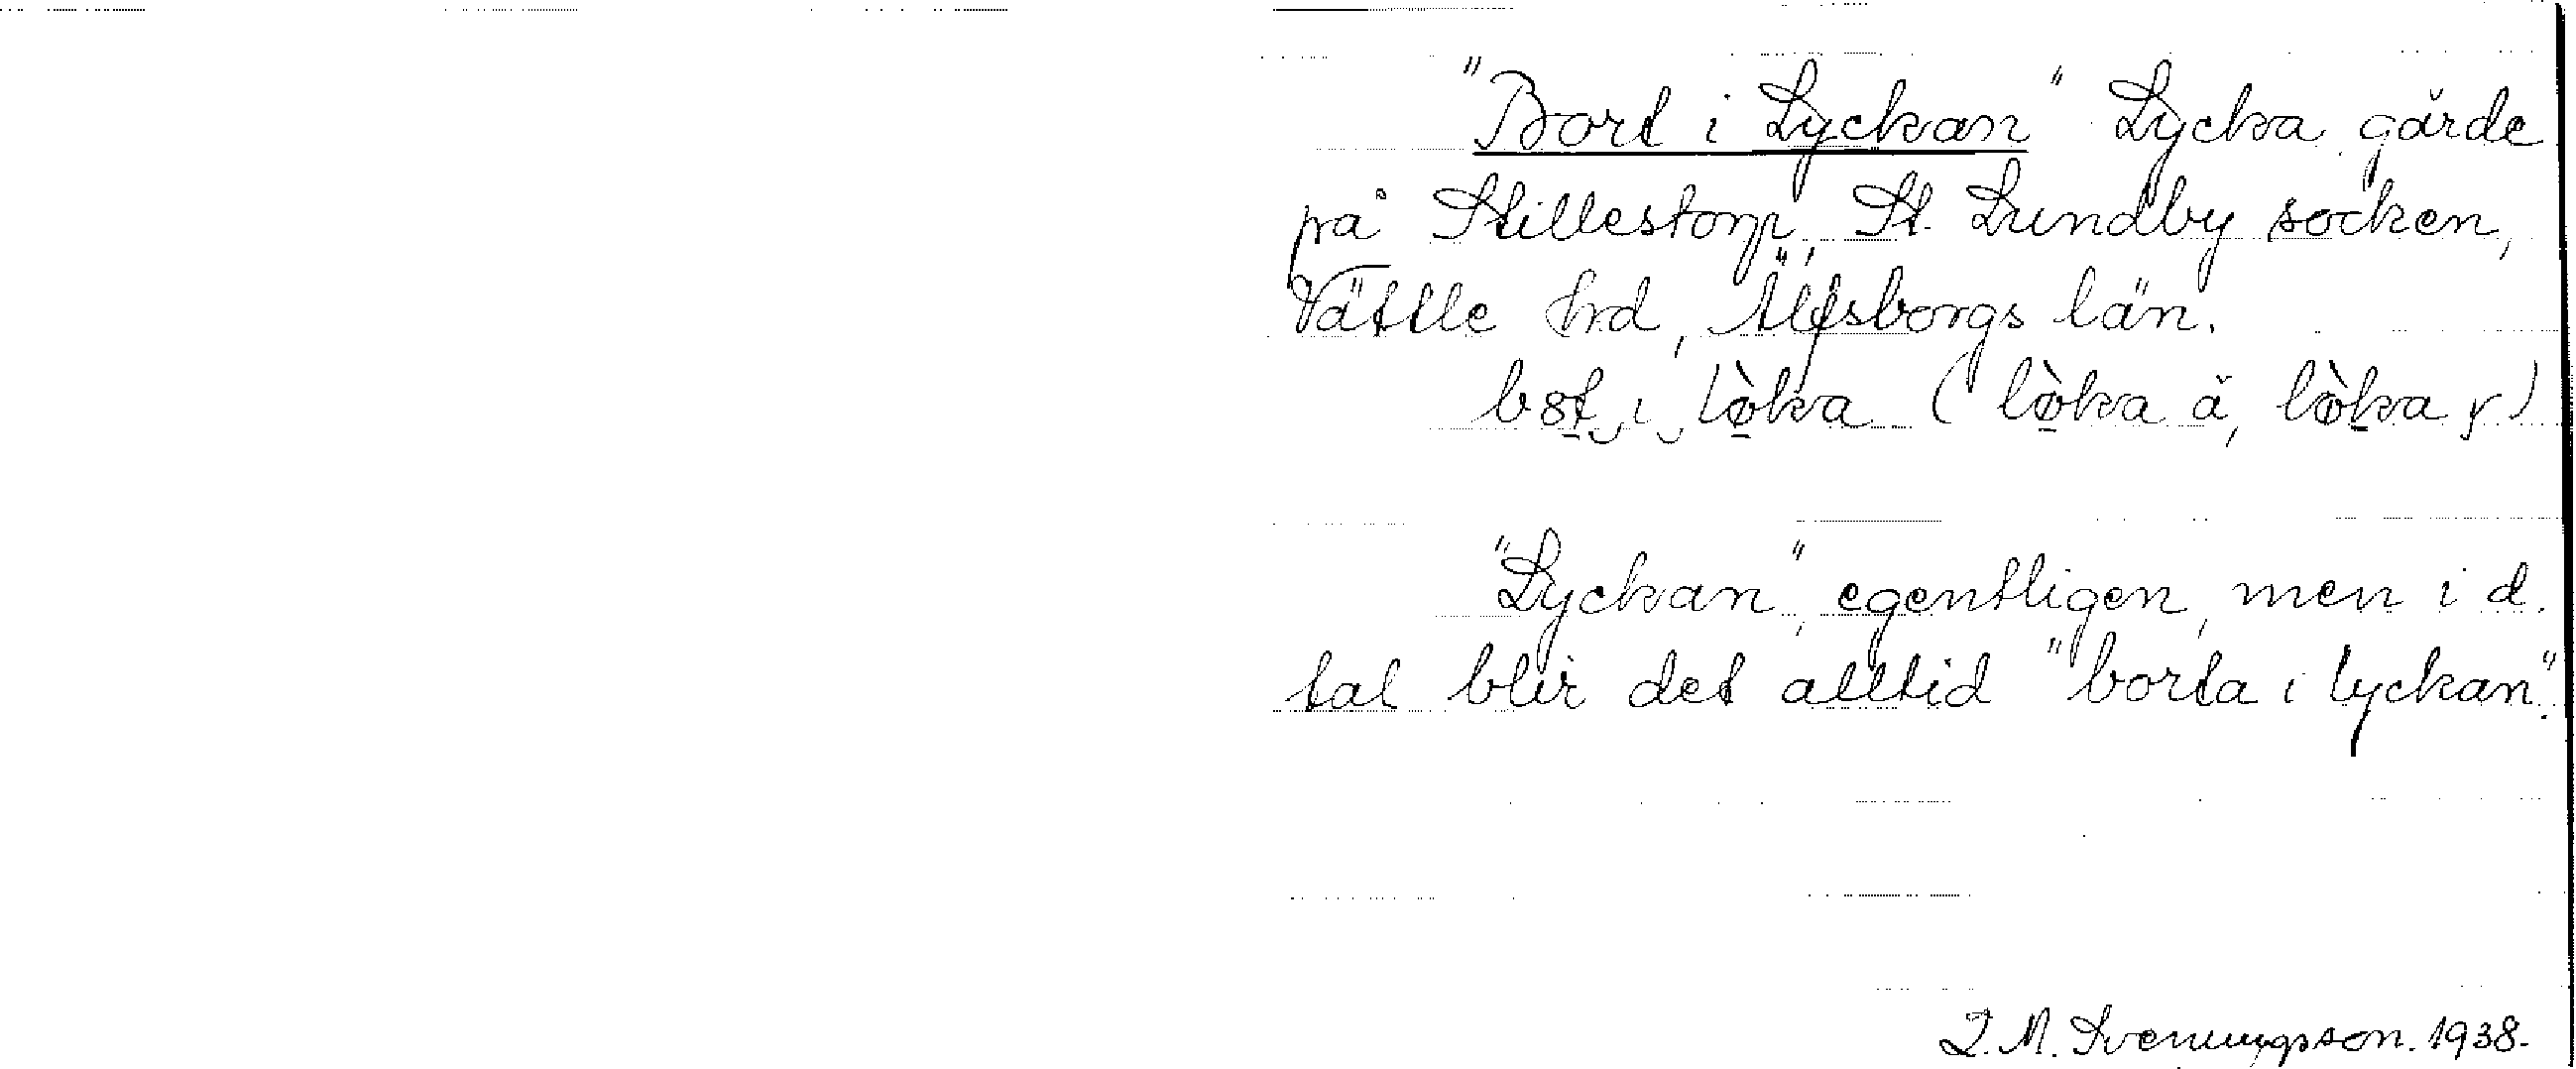 "Bort i Lyckan" Lycka, gärde
på Stillestorp, St. Lundby socken,
Vättle hrd, Älfsborgs län.
bot i lø̀ka (lø̀ka å, lø̀ka r)
"Lyckan", egentligen, men i d.
tal blir det alltid "borta i lyckan".
J. M. Svenungsson. 1938.